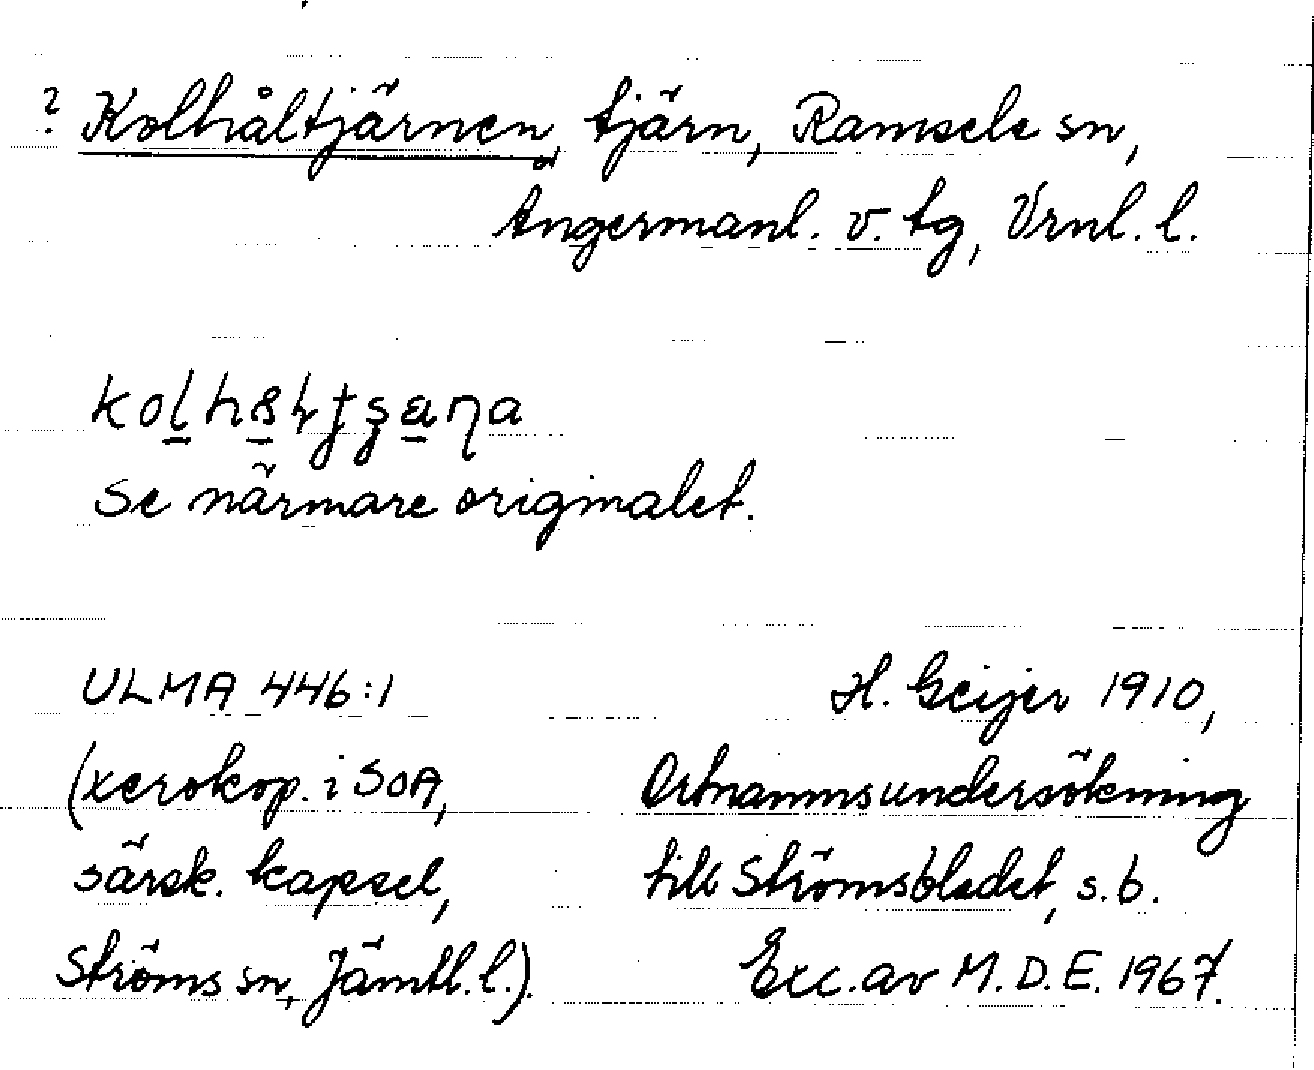 ? Kolhåltjärnen, tjärn, Ramsele sn,
Ångermanl. v. tg, Vrnl. l.
Se närmare originalet.
ULMA 446:1
(xerokop. i SOA,
särsk. kapsel,
Ströms sn, Jämtl. l.).
H. Geijer 1910,
Ortnamnsundersökning
till Strömsbladet, s. 6.
Exc. av M. D. E. 1967.